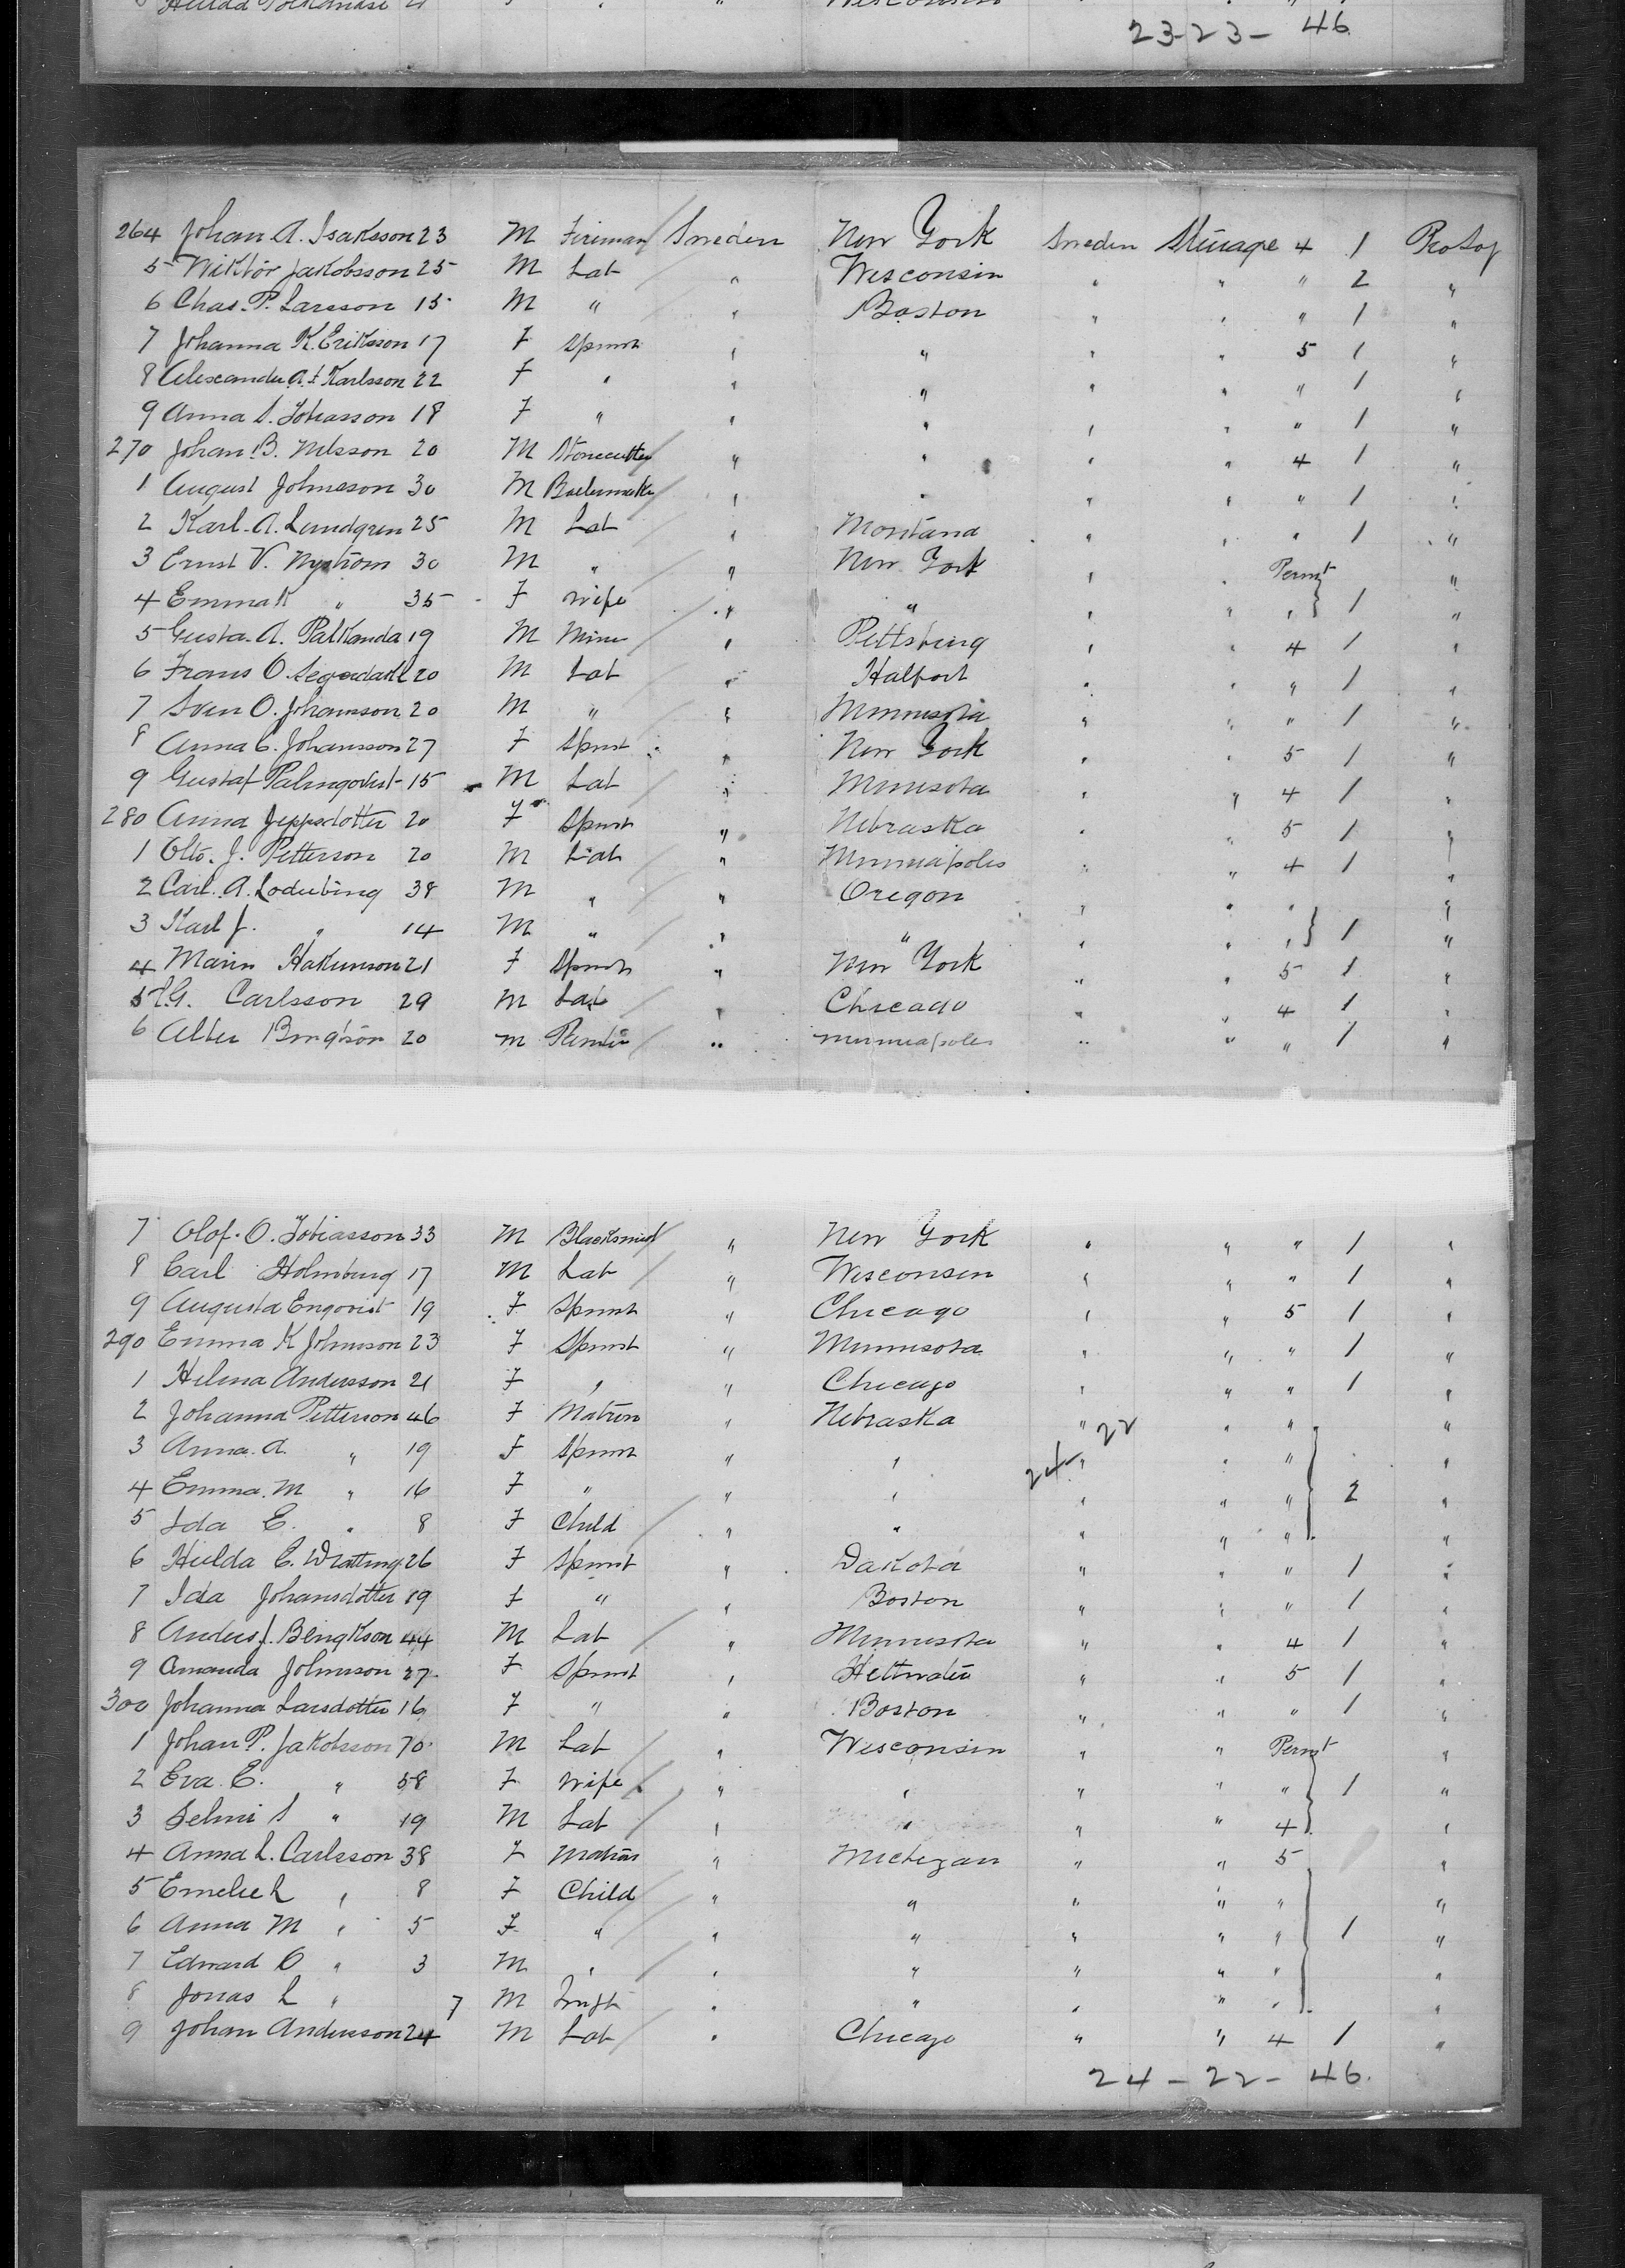 Wisconsin
23-23- 46
264 Johan A. Isaksson 23 M Fireman Sweden New York Sweden Steerage 4 1 Pro Soj
5 Wiktor Jakobsson 25 M Lab " Wisconsin " " " 2 "
6 Chas. P. Larsson 15 M " " Boston " " " 1 "
7 Johanna K. Eriksson 17 F Spinst " " " " 5 1 "
8 Alexander A. F Karlsson 22 F " " " " " " 1 "
9 Anna S. Tobiasson 18 F " " " " " " 1 "
270 Johan B. Nilsson 20 M Stonecutter " " " " 4 1 "
1 August Johnsson 30 M " " " " " 1 "
2 Karl. A. Lundgren 25 M Lab " Montana " " " 1 "
3 Ernst V. Nystrom 30 M " " New York " " Permt "
4 Emma K " 35 F Wife " " " " " } 1 "
5 Gusta. A. Palkanda 19 M Miner " Pittsburg " " 4 1 "
6 Frans O. 20 M Lab " Halfort " " " 1 "
7 Sven O. Johansson 20 M " " Minnesota " " " 1 "
8 Anna C. Johansson 27 F Spinst " New York " " 5 1 "
9 Gustaf Palmqvist 15 M Lab " Minnesota " " 4 1 "
280 Anna Jeppsdotter 20 F Spinst " Nebraska " " 5 1 "
1 Otto. J. Petterson 20 M Lab " Minneapoles " " 4 1 "
2 Carl. A. 38 M " " Oregon " " " "
3 Karl J. " 14 M " " " " " " } 1 "
4 Marin Hakunson 21 F Spinst " New York " " 5 1 "
5 C.G. Carlsson 29 M Lab " Chicago " " 4 1 "
6 Alber Bengtson 20 M " minneapoles " " " 1 "
7 Olof. O. Tobiasson 33 M Blacksmith " New York " " " 1 "
8 Carl Holmburg 17 M Lab " Wisconsin " " " 1 "
9 Augusta Enqvist 19 F Spinst " Chicago " " 5 1 "
290 Emma K Johnson 23 F Spinst " Minnesota " " " 1 "
1 Hilma Andersson 21 F " " Chicago " " " 1 "
2 Johanna Petterson 46 F Matron " Nebraska " " " "
24-22
3 Anna. A. " 19 F Spinst " " " " " "
4 Emma. M " 16 F " " " " " " } 2 "
5 Ida E. " 8 F Child " " " " " "
6 Hulda C. Wratting 26 F Spinst " Dakota " " " 1 "
7 Ida Johansdotter 19 F " " Boston " " " 1 "
8 Anders J. Bengtson 44 M Lab " Minnesota " " 4 1 "
9 Amanda Johnsson 27 F Spinst " " " 5 1 "
300 Johanna Larsdotter 16 F " " Boston " " " 1 "
1 Johan P. Jakobsson 70 M Lab " Wisconsin " " Permt "
2 Eva E. " 58 F Wife " " " " " } 1 "
3 Selmi S " 19 M Lab " " " " 4 "
4 Anna L. Carlsson 38 F Matron " Michigan " " 5 "
5 Emelie L " 8 F Child " " " " " "
6 Anna M " 5 F " " " " " " } 1 "
7 Edward O " 3 M " " " " " " "
8 Jonas L " 7 M Inft " " " " " "
9 Johan Andersson 24 M Lab " Chicago " " 4 1 "
24-22-46.